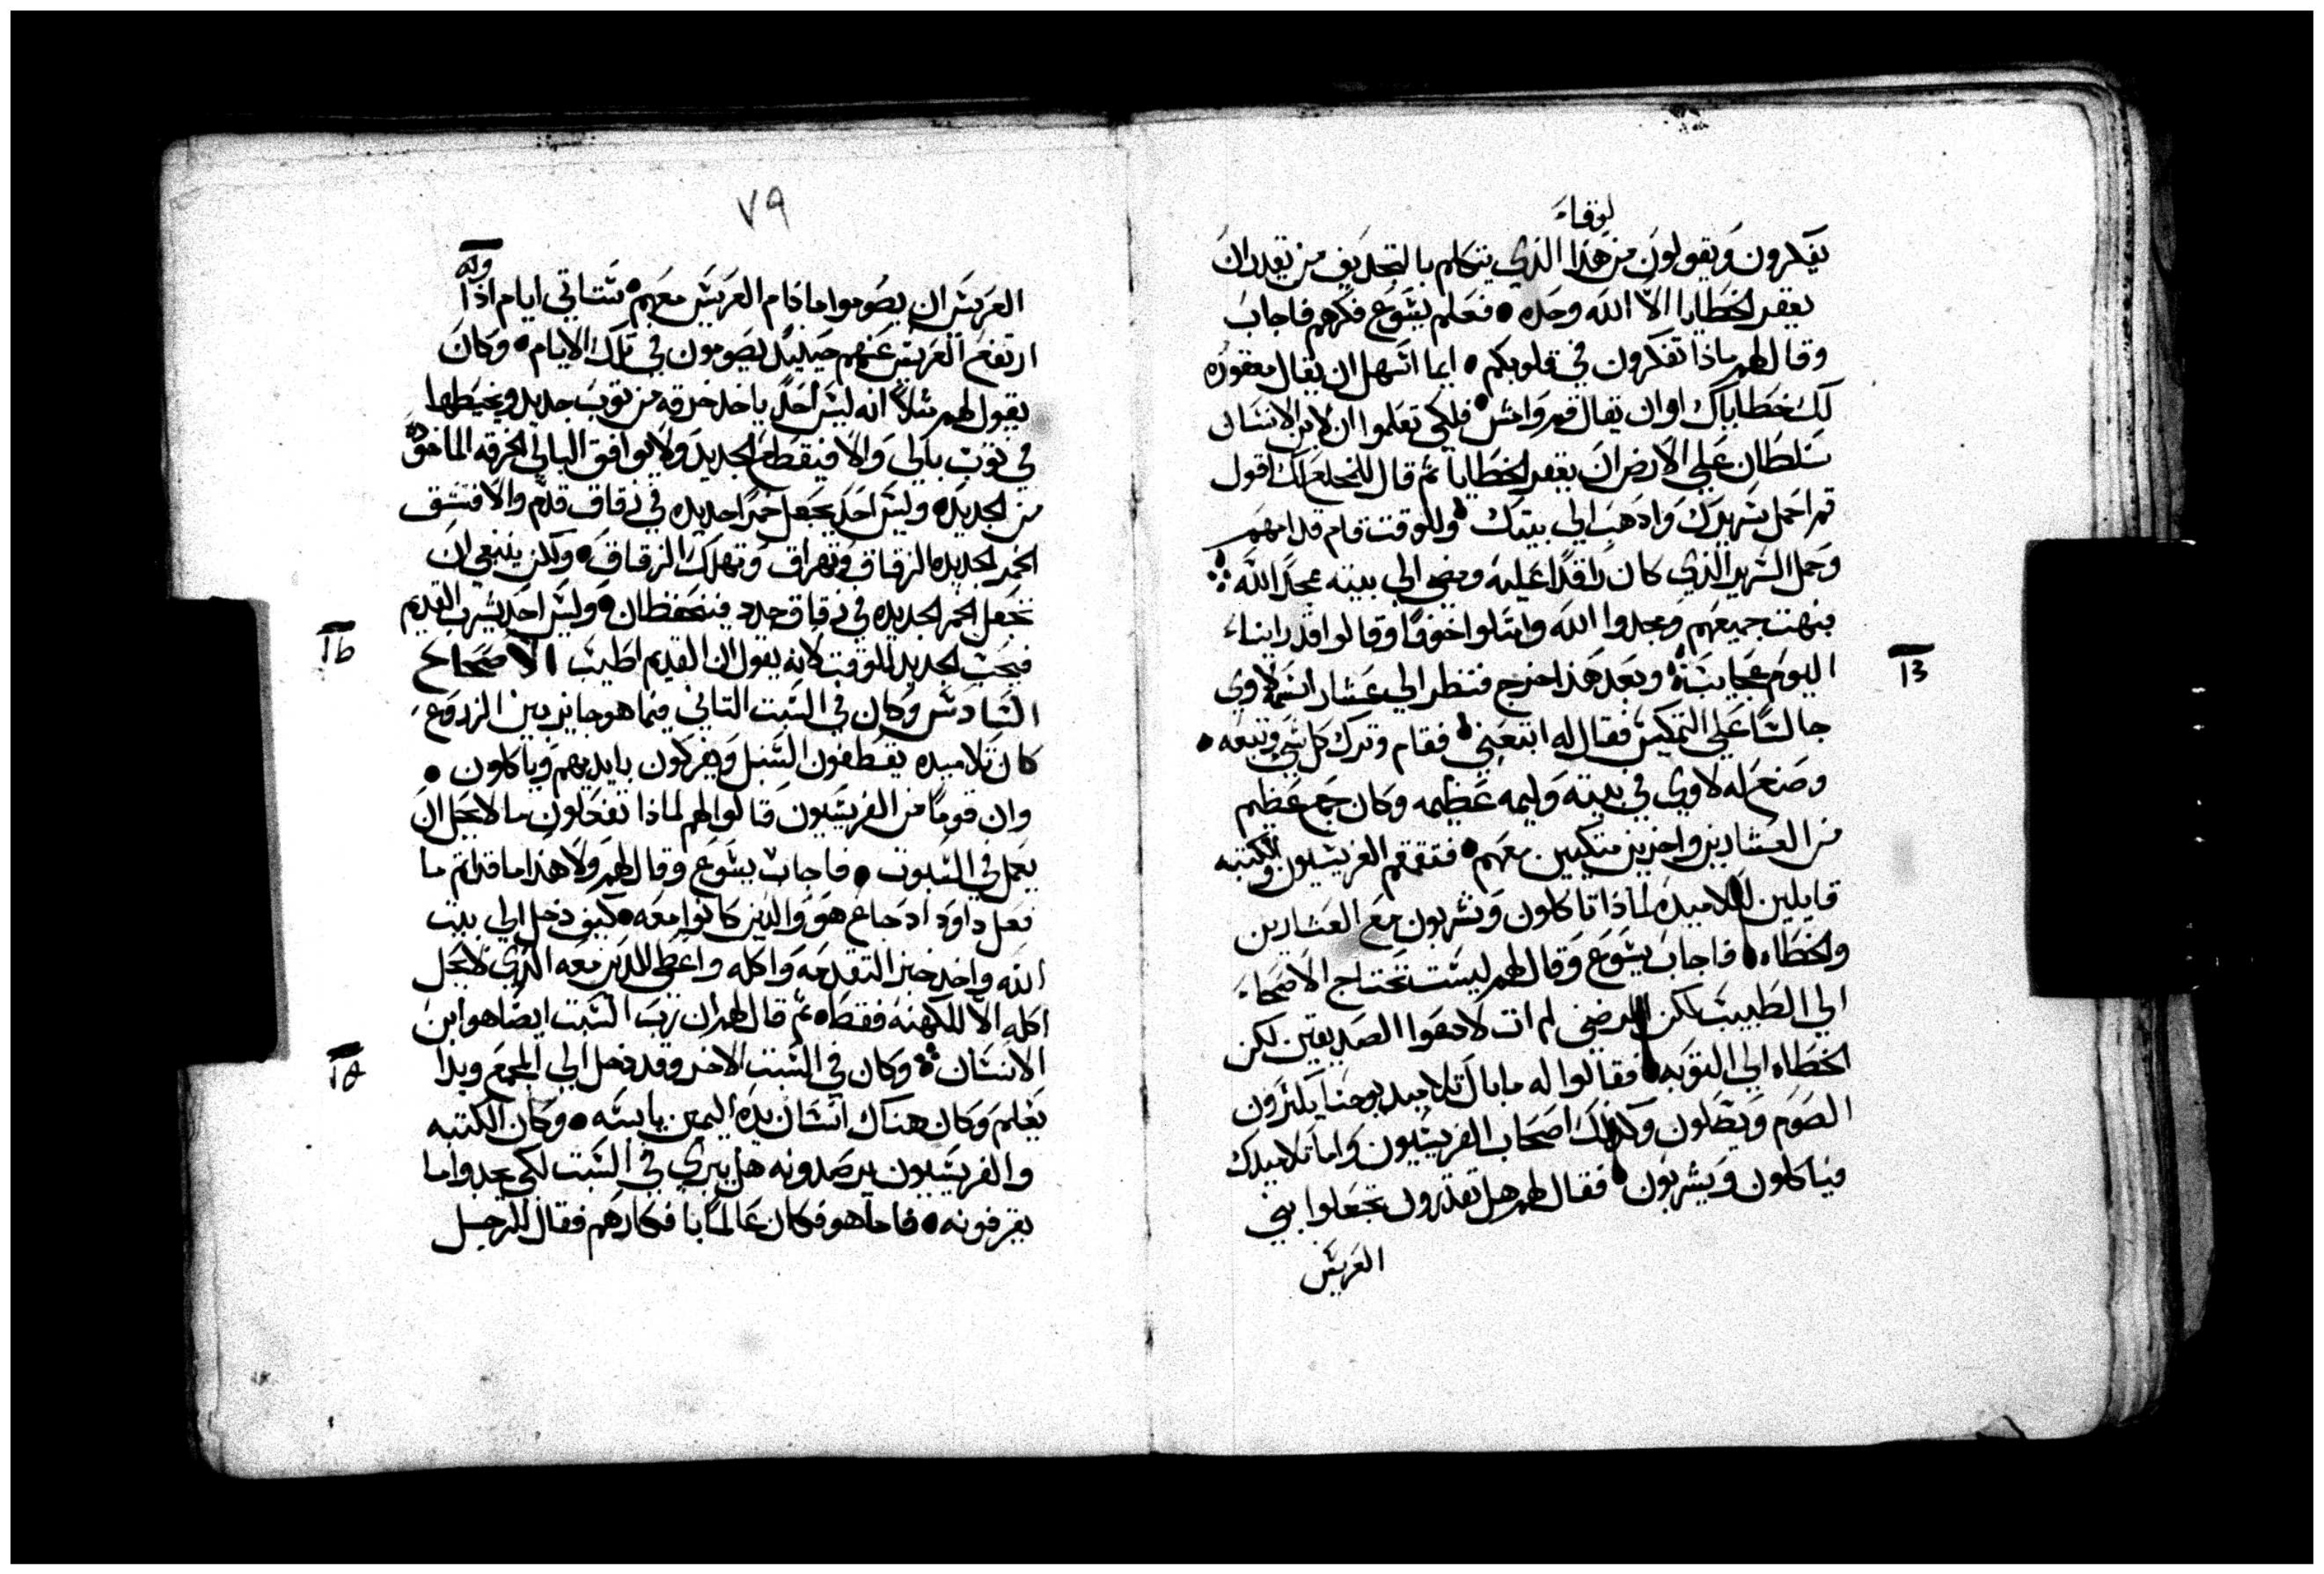 لوقاء
يفكرون ويقولون من هذا الذي يتكلم بالتجديف من يقدر ان
يغفر الخطايا الا الله وحده • فعلم يشوع فكرهم فاجاب
وقال لهم ماذا تفكرون في قلوبكم • ايما اسهل ان يقال مغفوره
لك خطاياك او ان يقال قم وامش • فلكي تعلموا ان لابن الانسان
سلطان علي الارض ان يغفر الخطايا ثم قال للمخلع لك اقول
قم احمل سريرك واذهب الي بيتك • وللوقت قام قدامهم
وحمل السرير الذي كان راقدا عليه ومضي الي بيته ممجدا الله
فبهت جميعهم ومجدوا الله وامتلوا خوفا وقالوا قد راينا
اليوم عجايب • وبعد هذا خرج فنظر الي عشار اسمه لاوي
جالسا علي التمكيس فقال له اتبعني • فقام وترك كل شي وتبعه •
وصنع له لاوي في بيته وليمه عظيمه وكان جمع عظيم
من العشارين واخرين متكيين معهم • فتقمقم الفريسيون والكتبه
قايلين لتلاميده لماذا تاكلون وتشربون مع العشارين
والخطاه • فاجاب يشوع وقال لهم ليست تحتاج الاصحاء
الي الطبيب لكن المرضي لم ات لادعوا الصديقين لكن
الخطاه الي التوبه • فقالوا له ما بال تلاميد يوحنا يكثرون
الصوم ويصلون وكدلك اصحاب الفريسيون واما تلاميدك
فياكلون ويشربون • فقال لهم هل تقدرون تجعلوا بني
العريس
٧٩
العريس ان يصوموا ما دام العريس معهم • ستاتي ايام اذا
ارتفع العريس عنهم حينيد يصومون في تلك الايام • وكان
يقول لهم مثلا انه ليس احد ياخد خرقه من توب جديد ويخيطها
في توب بالي والا فيقطع الجديد ولا يوافق البالي الخرقه الماخوده
من الجديد • وليس احد يجعل خمرا جديده في زقاق قدم والا فتشق
الخمر الجديده الزقاق وتهراق وتهلك الزقاق • ولكن ينبغي ان
تجعل الخمر الجديده في زقاق جدد فيتحفظان • وليس احد يشرب القديم
فيحب الجديد للوقت لانه يقول ان القديم اطيب الاصحاح
السادس وكان في السبت التاني فيما هو جايز بين الزروع
كان تلاميده يقطفون السنبل ويفركون بايديهم وياكلون •
وان قوما من الفريسيون قالوا لهم لماذا تفعلون ما لا يحل ان
يعمل في السبوت • فاجاب يشوع وقال لهم ولا هذا ما قراتم ما
فعل داود اد جاع هو والدين كانوا معه • كيف دخل الي بيت
الله واخد خبز التقدمه واكله واعطي للدين معه الدي لا يحل
اكله الا للكهنه فقط • ثم قال لهم ان رب السبت ايضا هو ابن
الانسان • وكان في السبت الاخر وقد دخل الي المجمع وبدا
يعلم وكان هناك انسان يده اليمين يابسه • وكان الكتبه
والفريسيون يرصدونه هل يبري في السبت لكي يجدوا ما
يقرفونه • فاما هو فكان عالما بافكارهم فقال للرجل